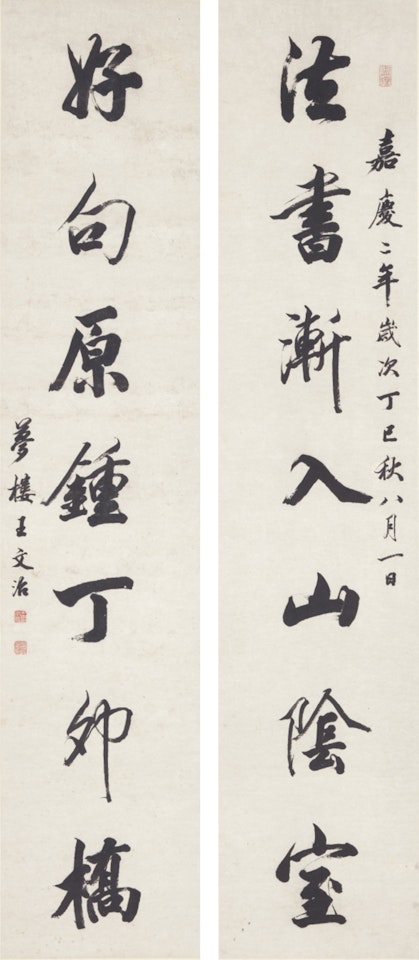 嘉慶二年歲次丁巳秋八月一日
法書漸入山陰室
好句原鍾丁卯橋
夢樓王文治